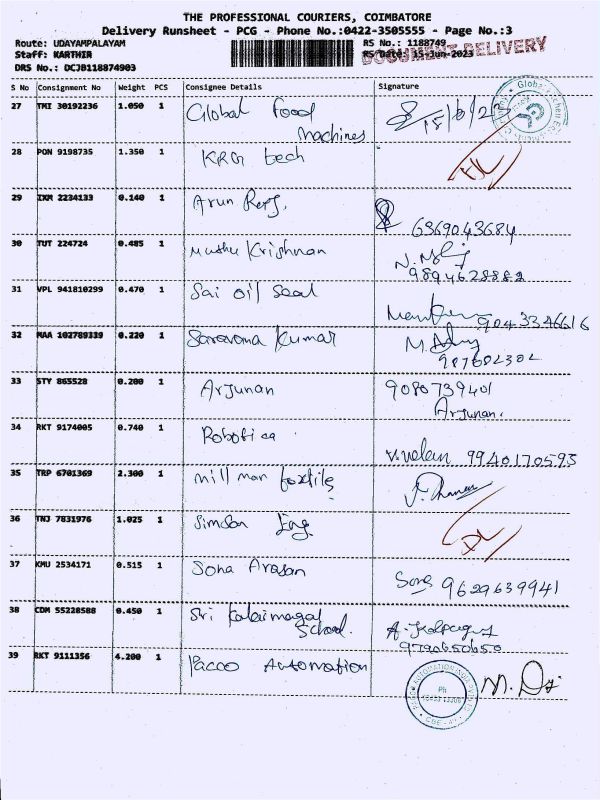 THE PROFESSIONAL COURIERS, COIMBATORE
Delivery Runsheet - PCG - Phone No.:0422-3505555 - Page No.:3
Route: UDAYAMPALAYAM
RS No.: 1188749
DOCUMENT DELIVERY
Staff: KARTHIK
RS Date: 15-Jun-2023
DRS No.: DCJ0118874903
S No Consignment No Weight PCS Consignee Details Signature
27 TMI 30192236 1.050 1 Global Food Machines 15/6/23
28 PON 9198735 1.350 1 KRG tech
29 IXM 2234133 0.140 1 Arun 6369043684
30 TUT 224724 0.485 1 Muthu Krishnan 9894628882
31 VPL 941810299 0.470 1 Sai oil Seal 9043346616
32 MAA 102789339 0.220 1 Saravana Kumar
33 STY 865528 0.200 1 Arjunan 9080739401
Arjunan.
34 RKT 9174005 0.740 1 Robotica V.Velan 9940170593
35 TRP 6701369 2.300 1 mill man textile
36 TNJ 7831976 1.025 1 Simson Eng.
37 KMU 2534171 0.515 1 Sona Arasan Song 9629639941
38 CDM 55228588 0.450 1 Sri Kalaimagal School.
9790650650
39 RKT 9111356 4.200 1 Pacco Automation